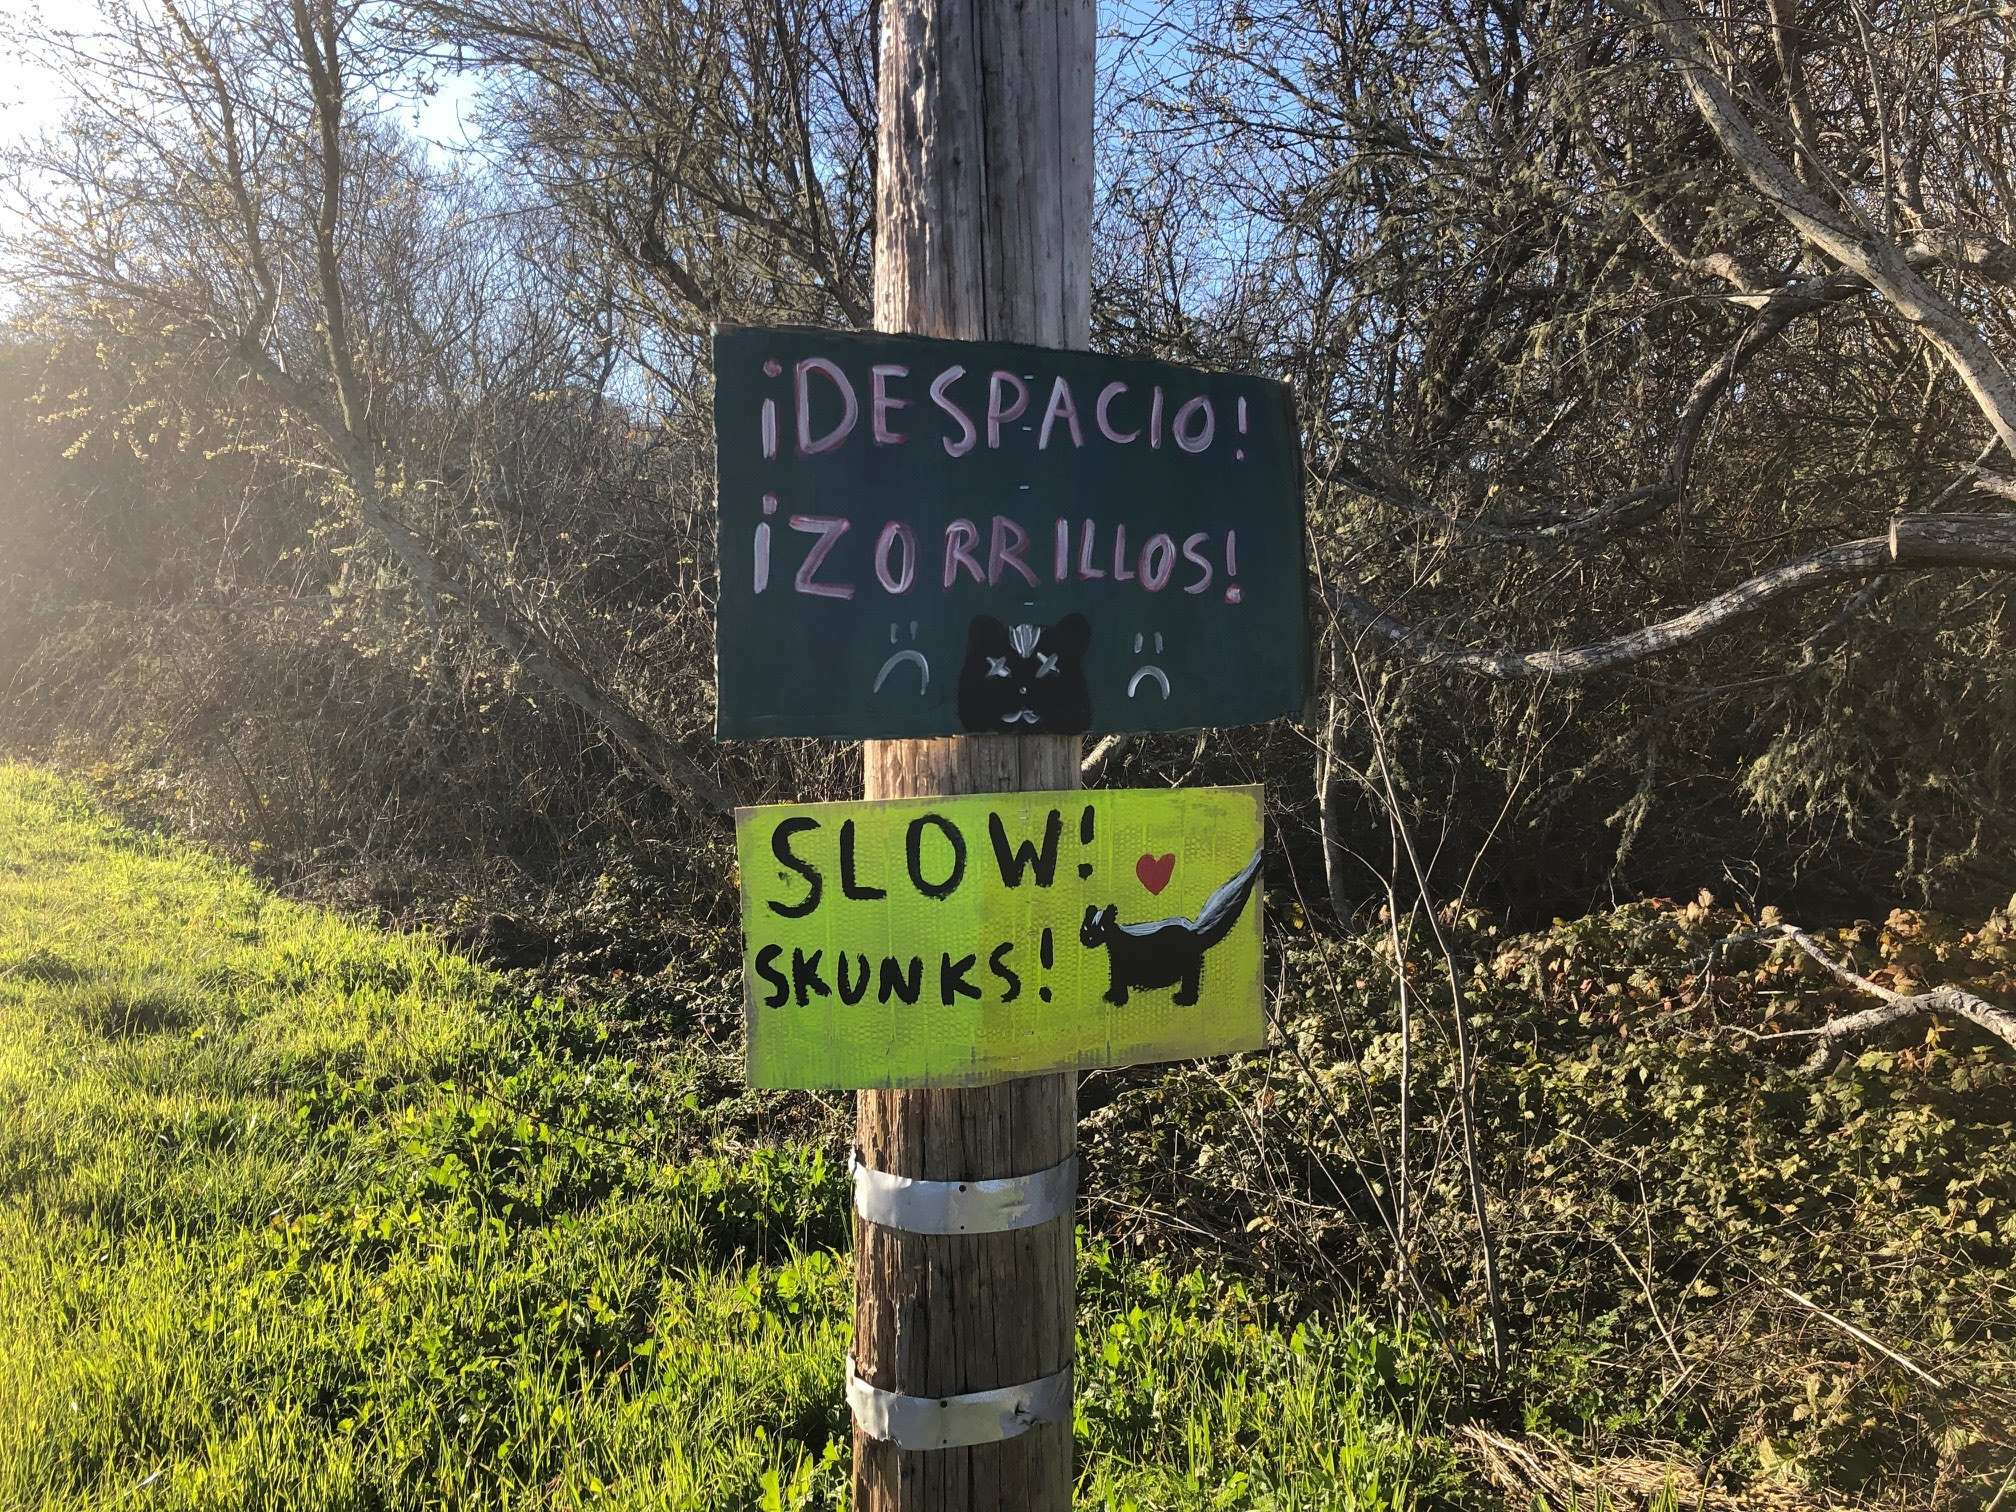 ¡DESPACIO!
¡ZORRILLOS!
SLOW!
SKUNKS!